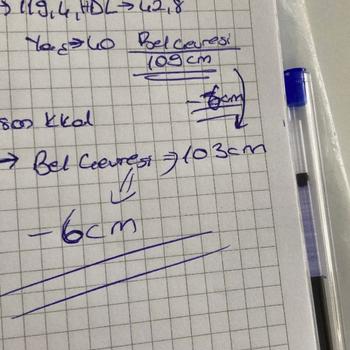 → 119,4, HDL → 42,8
Yaş → 40 Bel Çevresi
109 cm
-6cm
800 kkal
→ Bel Çevresi ⇒ 103 cm
- 6cm